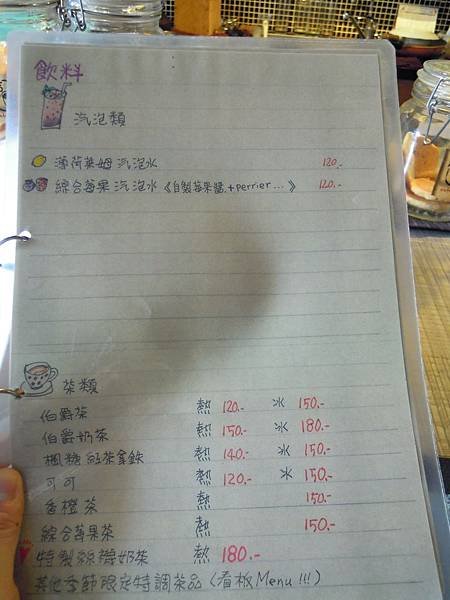 飲料
汽泡類
薄荷萊姆汽泡水 120.-
綜合莓果汽泡水《自製莓果醬.+perrier...》 120.-
茶類
伯爵茶 熱 120.- 冰 150.-
伯爵奶茶 熱 150.- 冰 180.-
楓糖紅茶拿鉄 熱 140.- 冰 150.-
可可 熱 120.- 冰 150.-
香橙茶 熱 150.-
綜合莓果茶 熱 150.-
特製絲襪奶茶 熱 180.-
其他季節限定特調茶品(看板Menu!!!)